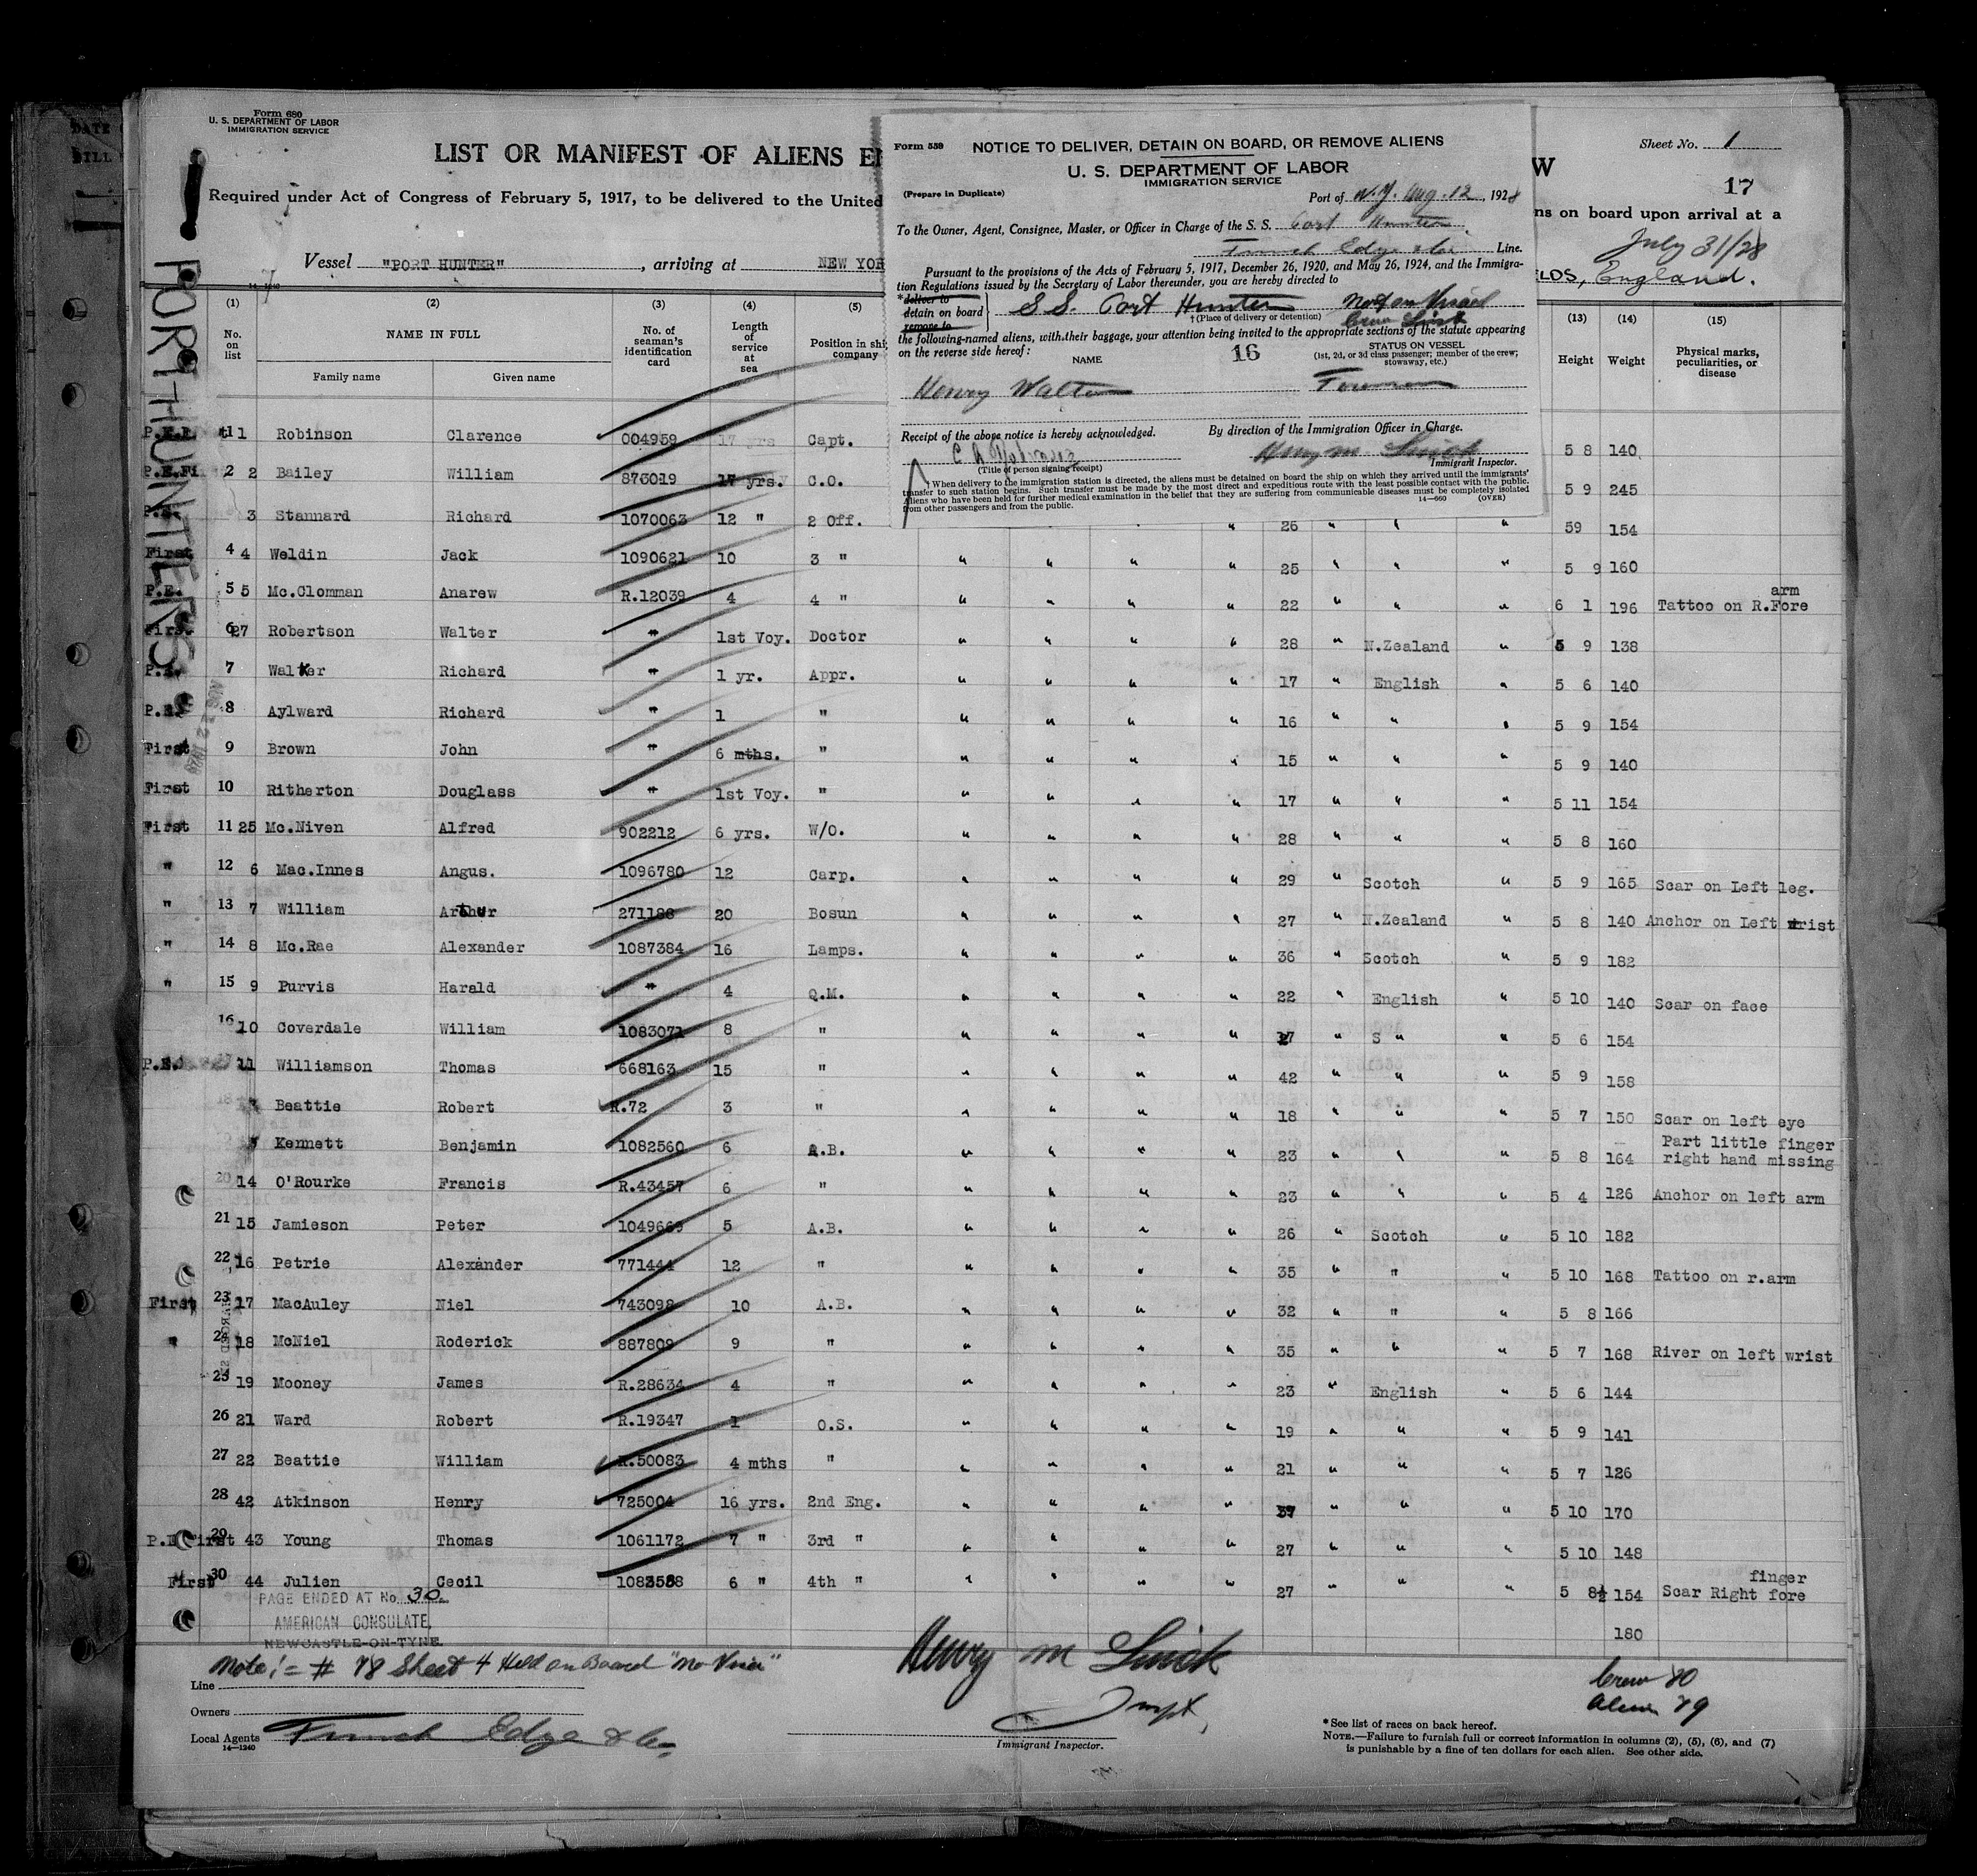 Form 680
U. S. DEPARTMENT OF LABOR
IMMIGRATION SERVICE
LIST OR MANIFEST OF ALIENS E
Required under Act of Congress of February 5, 1917, to be delivered to the United
Vessel "PORT HUNTER", arriving at NEW YOR
PORT HUNTER
Sheet No. 1
W
17
ns on board upon arrival at a
July 31/28
ELDS, England.
Form 559 NOTICE TO DELIVER, DETAIN ON BOARD, OR REMOVE ALIENS
U. S. DEPARTMENT OF LABOR
IMMIGRATION SERVICE
(Prepare in Duplicate) Port of N.Y. Aug. 12, 1928
To the Owner, Agent, Consignee, Master, or Officer in Charge of the S. S. Port Hunter
Edge & Co Line.
Pursuant to the provisions of the Acts of February 5, 1917, December 26, 1920, and May 26, 1924, and the Immigra-
tion Regulations issued by the Secretary of Labor thereunder, you are hereby directed to
*deliver to
detain on board S S. Port Hunter Not on Visaed
remove to † (Place of delivery or detention) Crew List
the following-named aliens, with their baggage, your attention being invited to the appropriate sections of the statute appearing
on the reverse side hereof:
NAME 16 STATUS ON VESSEL
(1st, 2d, or 3d class passenger; member of the crew;
stowaway, etc.)
Henry Walton
Receipt of the above notice is hereby acknowledged. By direction of the Immigration Officer in Charge.
Henry M
(Title of person signing receipt) Immigrant Inspector.
† When delivery to the immigration station is directed, the aliens must be detained on board the ship on which they arrived until the immigrants'
transfer to such station begins. Such transfer must be made by the most direct and expeditious route with the least possible contact with the public.
Aliens who have been held for further medical examination in the belief that they are suffering from communicable diseases must be completely isolated
from other passengers and from the public. 14—660 (OVER)
(1) (2) (3) (4) (5) (13) (14) (15)
No. on list NAME IN FULL No. of seaman's identification card Length of service at sea Position in ship's company Height Weight Physical marks, peculiarities, or disease
Family name Given name
1 1 Robinson Clarence 004959 17 yrs Capt. 5 8 140
2 2 Bailey William 873019 17 yrs. C.O. 5 9 245
3 Stannard Richard 1070063 12 " 2 Off. " 26 " " " 59 154
First 4 4 Weldin Jack 1090621 10 3 " " " " " 25 " " " 5 9 160
P.E. 5 5 Mc.Clomman Anarew R.12039 4 4 " " " " " 22 " " " 6 1 196 Tattoo on R.Fore arm
First 6 27 Robertson Walter " 1st Voy. Doctor " " " " 28 " N.Zealand " 5 9 138
P.E. 7 Walker Richard " 1 yr. Appr. " " " " 17 " English " 5 6 140
P.E. 8 Aylward Richard " 1 " " " " " 16 " " " 5 9 154
First 9 Brown John " 6 mths. " " " " " 15 " " " 5 9 140
First 10 Ritherton Douglass " 1st Voy. " " " " " 17 " " " 5 11 154
First 11 25 Mc.Niven Alfred 902212 6 yrs. W/O. " " " " 28 " " " 5 8 160
" 12 6 Mac.Innes Angus. 1096780 12 Carp. " " " " 29 " Scotch " 5 9 165 Scar on Left leg.
" 13 7 William Arthur 271188 20 Bosun " " " " 27 " N.Zealand " 5 8 140 Anchor on Left wrist
" 14 8 Mc.Rae Alexander 1087384 16 Lamps. " " " " 36 " Scotch " 5 9 182
" 15 9 Purvis Harald " 4 Q.M. " " " " 22 " English " 5 10 140 Scar on face
16 10 Coverdale William 1083071 8 " " " " " " S " " 5 6 154
P.E. 11 Williamson Thomas 668163 15 " " " " " 42 " " " 5 9 158
18 Beattie Robert R.72 3 " " " " " 18 " " " 5 7 150 Scar on left eye
Kennett Benjamin 1082560 6 A.B. " " " " 23 " " " 5 8 164 Part little finger right hand missing
20 14 O'Rourke Francis R.43457 6 " " " " " 23 " " " 5 4 126 Anchor on left arm
21 15 Jamieson Peter 1049669 5 A.B. " " " " 26 " Scotch " 5 10 182
22 16 Petrie Alexander 771444 12 " " " " " 35 " " " 5 10 168 Tattoo on r.arm
First 23 17 MacAuley Niel 743098 10 A.B. " " " " 32 " " " 5 8 166
" 24 18 McNiel Roderick 887809 9 " " " " " 35 " " " 5 7 168 River on left wrist
25 19 Mooney James R.28634 4 " " " " " 23 " English " 5 6 144
26 21 Ward Robert R.19347 1 O.S. " " " " 19 " " " 5 9 141
27 22 Beattie William R.50083 4 mths " " " " " 21 " " " 5 7 126
28 42 Atkinson Henry 725004 16 yrs. 2nd Eng. " " " " " " " 5 10 170
P.E First 29 43 Young Thomas 1061172 7 " 3rd " " " " " 27 " " " 5 10 148
First 30 44 Julien Cecil 6 " 4th " " " " " 27 " " " 5 8½ 154 Scar Right fore finger
180
PAGE ENDED AT No. 30.
AMERICAN CONSULATE,
NEWCASTLE-ON-TYNE.
Note! = # 78 Sheet 4 Held on Board "No Visa"
Line
Owners
Local Agents Edge & Co.
14—1240
Henry M
Inspt.
Immigrant Inspector.
Crew 80
Aliens 79
* See list of races on back hereof.
NOTE.—Failure to furnish full or correct information in columns (2), (5), (6), and (7)
is punishable by a fine of ten dollars for each alien. See other side.